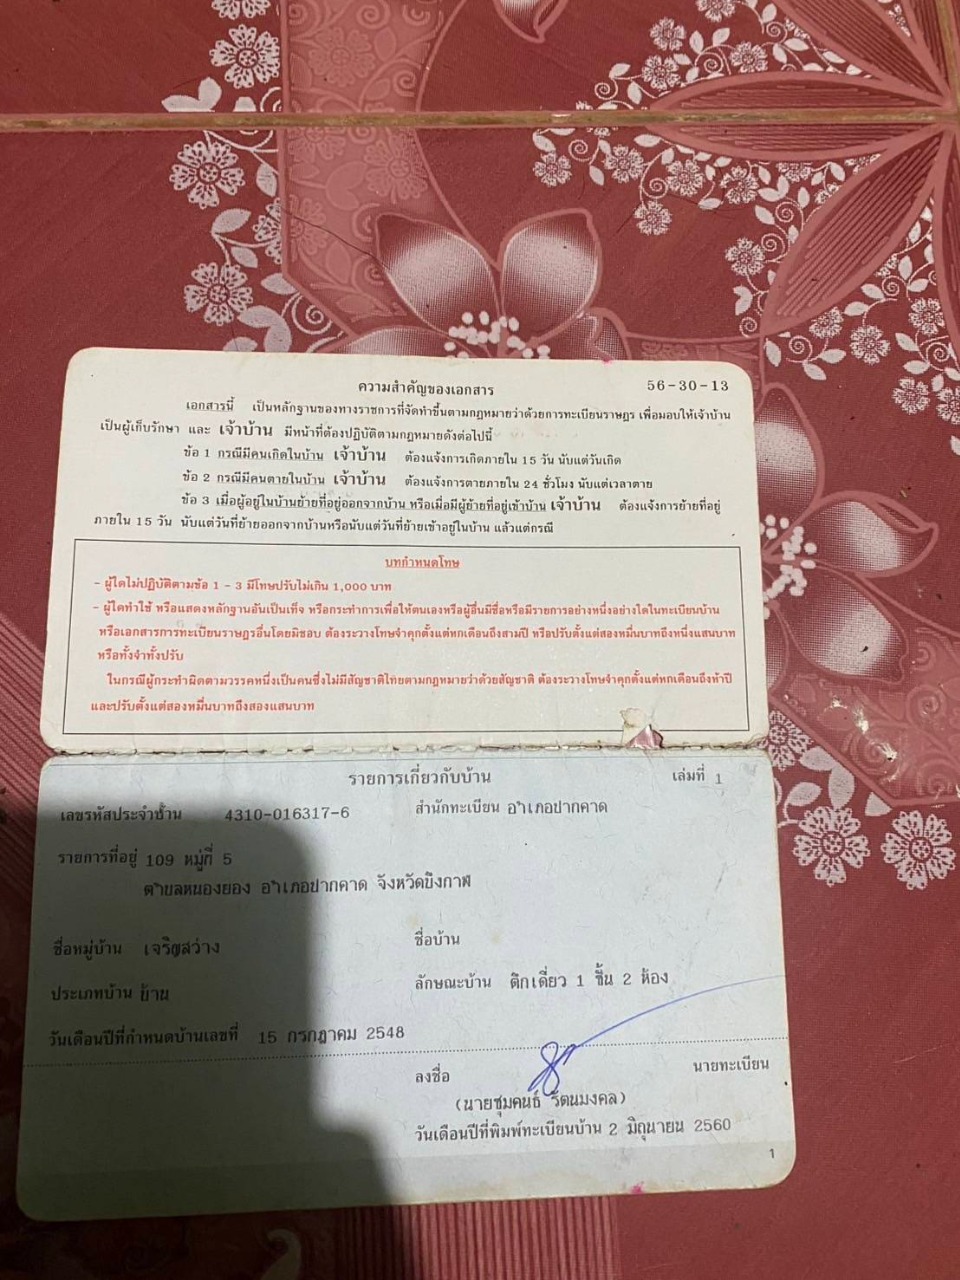 ความสำคัญของเอกสาร 56-30-13
เอกสารนี้ เป็นหลักฐานของทางราชการที่จัดทำขึ้นตามกฎหมายว่าด้วยการทะเบียนราษฎร เพื่อมอบให้เจ้าบ้าน
เป็นผู้เก็บรักษา และ เจ้าบ้าน มีหน้าที่ต้องปฏิบัติตามกฎหมายดังต่อไปนี้
ข้อ 1 กรณีมีคนเกิดในบ้าน เจ้าบ้าน ต้องแจ้งการเกิดภายใน 15 วัน นับแต่วันเกิด
ข้อ 2 กรณีมีคนตายในบ้าน เจ้าบ้าน ต้องแจ้งการตายภายใน 24 ชั่วโมง นับแต่เวลาตาย
ข้อ 3 เมื่อผู้อยู่ในบ้านย้ายที่อยู่ออกจากบ้าน หรือเมื่อมีผู้ย้ายที่อยู่เข้าบ้าน เจ้าบ้าน ต้องแจ้งการย้ายที่อยู่
ภายใน 15 วัน นับแต่วันที่ย้ายออกจากบ้านหรือนับแต่วันที่ย้ายเข้าอยู่ในบ้าน แล้วแต่กรณี
บทกำหนดโทษ
- ผู้ใดไม่ปฏิบัติตามข้อ 1 - 3 มีโทษปรับไม่เกิน 1,000 บาท
- ผู้ใดทำใช้ หรือแสดงหลักฐานอันเป็นเท็จ หรือกระทำการเพื่อให้ตนเองหรือผู้อื่นมีชื่อหรือมีรายการอย่างหนึ่งอย่างใดในทะเบียนบ้าน
หรือเอกสารการทะเบียนราษฎรอื่นโดยมิชอบ ต้องระวางโทษจำคุกตั้งแต่หกเดือนถึงสามปี หรือปรับตั้งแต่สองหมื่นบาทถึงหนึ่งแสนบาท
หรือทั้งจำทั้งปรับ
ในกรณีผู้กระทำผิดตามวรรคหนึ่งเป็นคนซึ่งไม่มีสัญชาติไทยตามกฎหมายว่าด้วยสัญชาติ ต้องระวางโทษจำคุกตั้งแต่หกเดือนถึงห้าปี
และปรับตั้งแต่สองหมื่นบาทถึงสองแสนบาท
รายการเกี่ยวกับบ้าน เล่มที่ 1
เลขรหัสประจำบ้าน 4310-016317-6 สำนักทะเบียน อำเภอปากคาด
รายการที่อยู่ 109 หมู่ที่ 5
ตำบลหนองยอง อำเภอปากคาด จังหวัดบึงกาฬ
ชื่อหมู่บ้าน เจริญสว่าง ชื่อบ้าน
ประเภทบ้าน บ้าน ลักษณะบ้าน ตึกเดี่ยว 1 ชั้น 2 ห้อง
วันเดือนปีที่กำหนดบ้านเลขที่ 15 กรกฎาคม 2548
ลงชื่อ นายทะเบียน
(นายชุมคนธ์ รัตนมงคล)
วันเดือนปีที่พิมพ์ทะเบียนบ้าน 2 มิถุนายน 2560
1